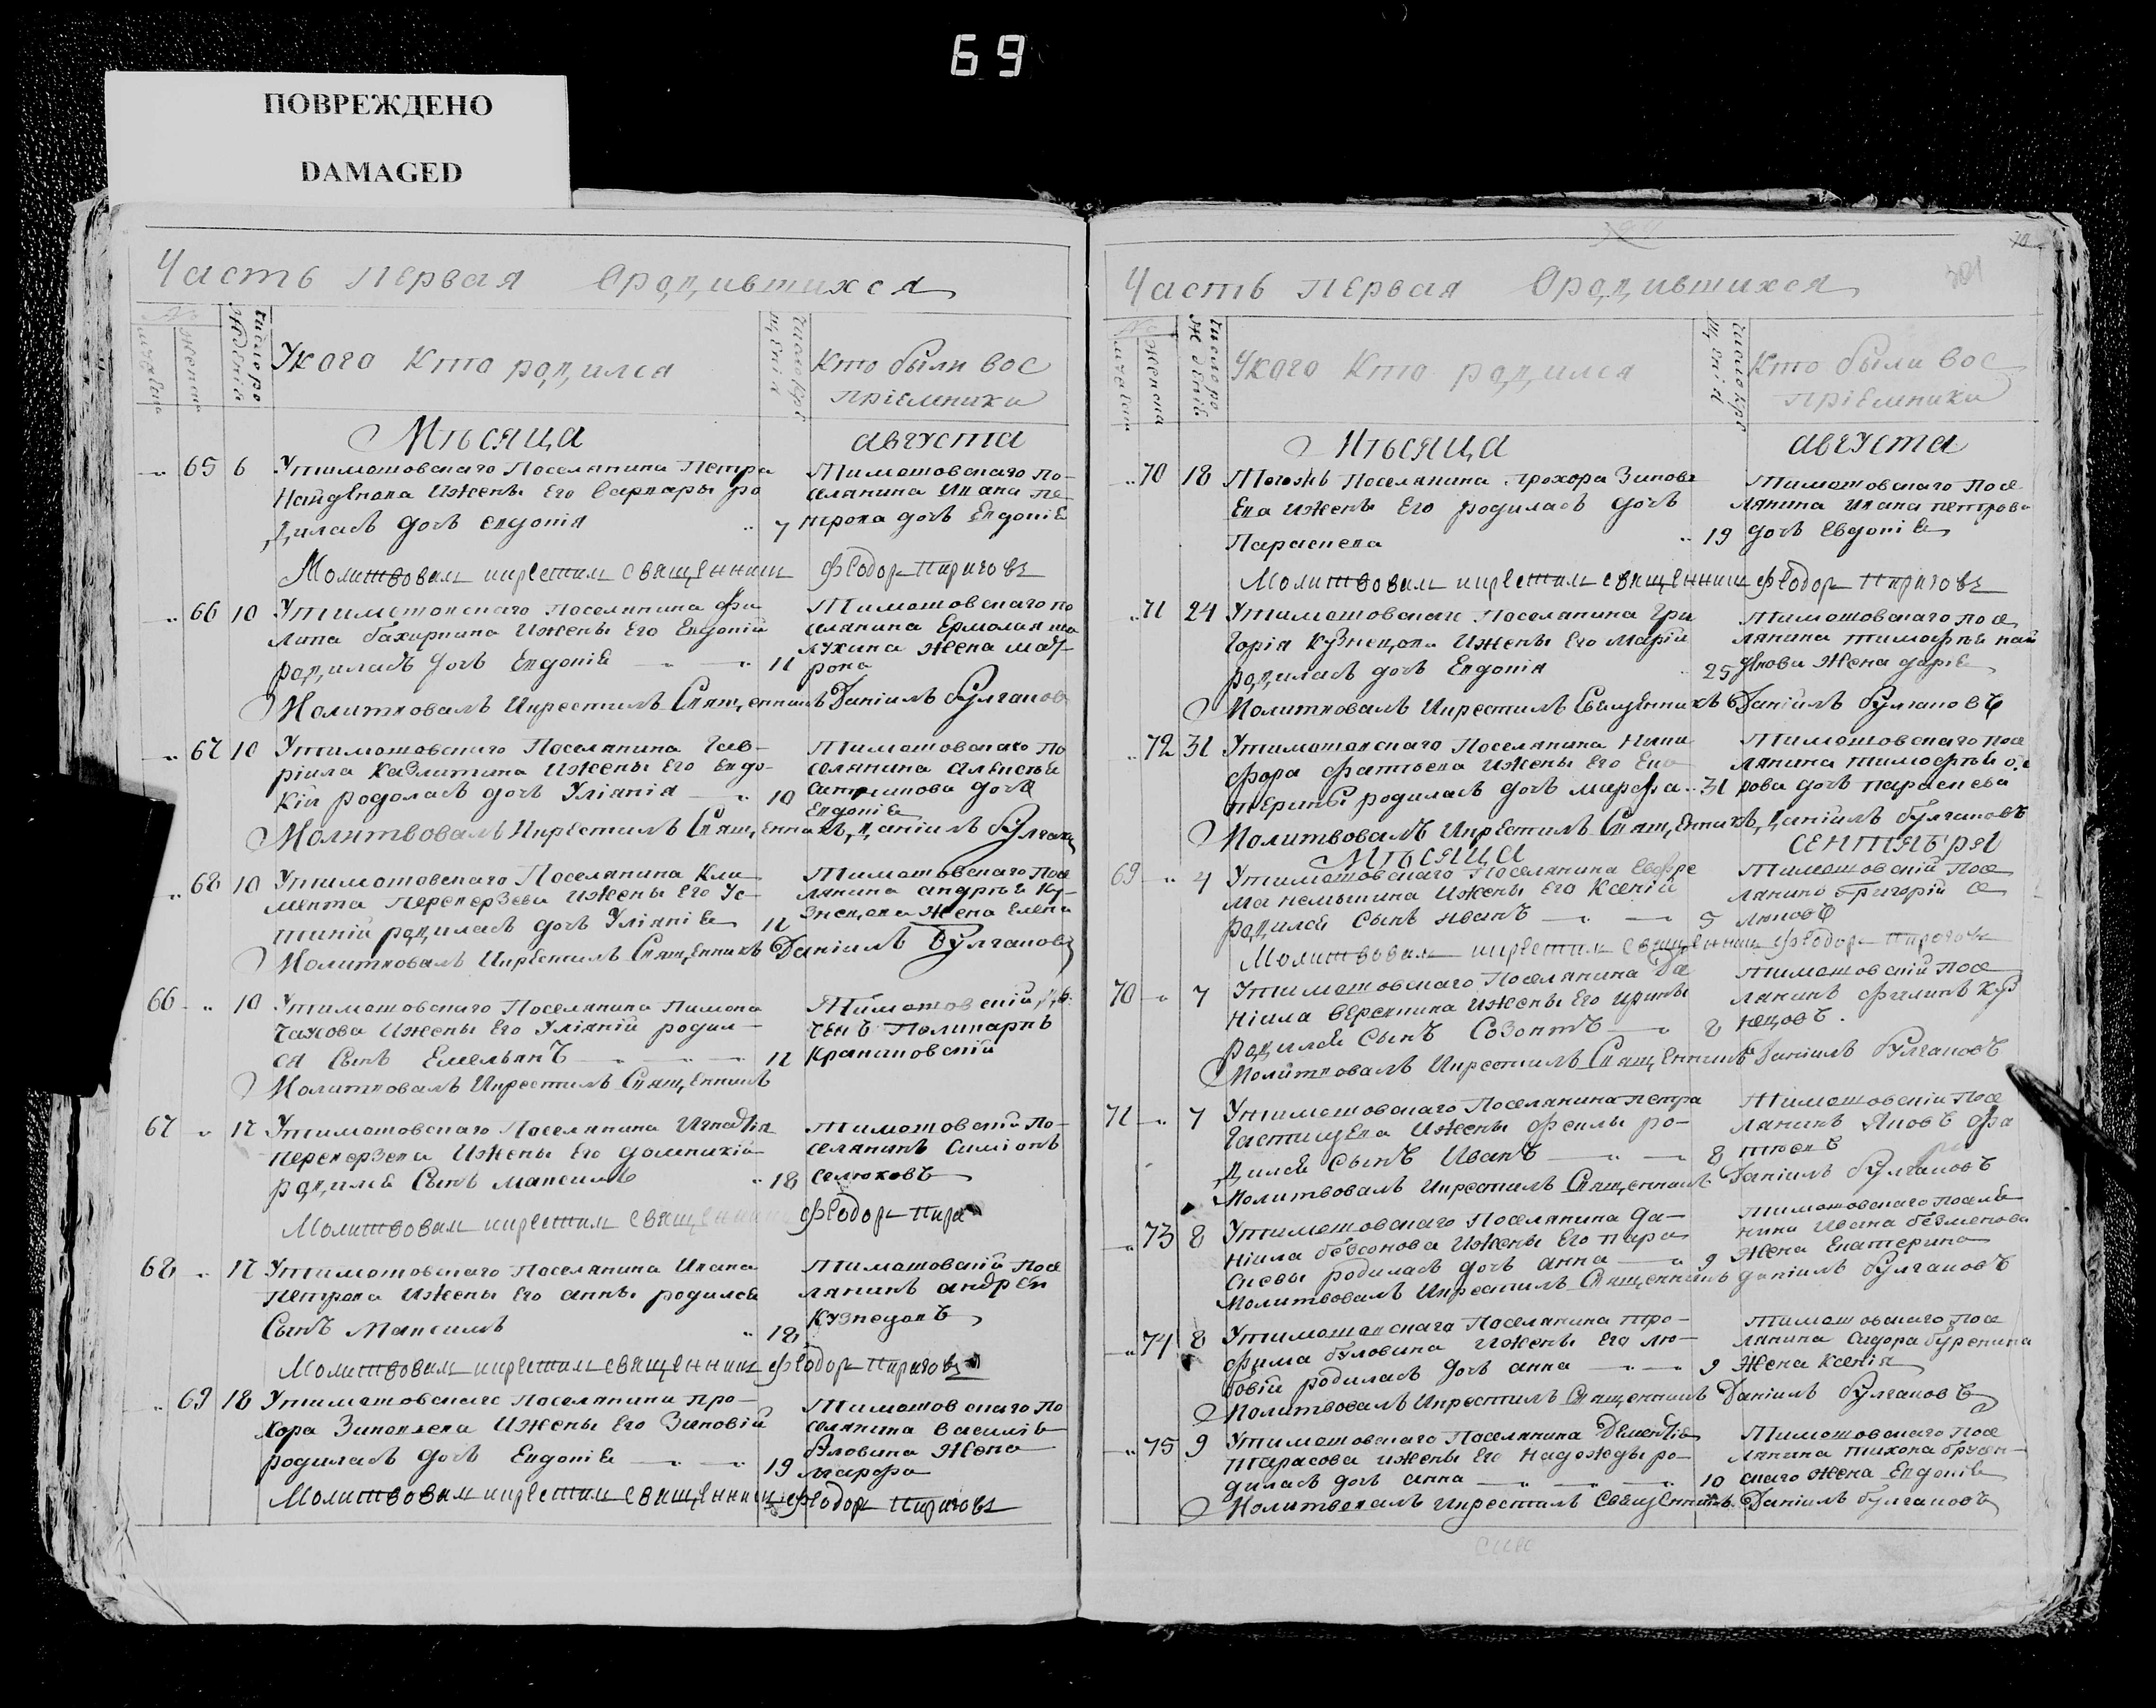 69
ПОВРЕЖДЕНО
DAMAGED
Часть первая Ородившихся
№
мужеска
женска
число рожденія
Укого Кто родился
число крещенія
Кто были вос
пріемники
Мѣсяца августа
65 6 Утимошовскаго Поселянина Петра
Найденова Ижены Его Варвары ро
дилась дочь евдокія 7
Тимошовскаго по-
селянина Ивана Пе-
трова дочь Евдокія
Молитвовал икрестил священник Феодор Пирогов
66 10 Утимошовскаго Поселянина Фи
липа Ижены Его Евдокіи
родилась дочь Евдокія 11
Тимошовскаго по
селянина Ермолая
жена Мат
рона
Молитвовалъ Икрестилъ Священникъ Даніилъ Булгаков
67 10 Утимошовскаго Поселянина Гав-
ріила Ижены Его Евдо-
кіи родолась дочь Уліянія 10
Тимошовскаго По
селянина Алексея
дочь
Евдокія
Молитвовалъ Икрестилъ Священникъ Даніилъ Булгаков
68 10 Утимошовскаго Поселянина Кли
мента Переверзева Ижены Его Ус-
тиніи родилась дочь Уліянія 12
Тимошовскаго Посе
лянина андрея Ку-
знецова Жена Елена
Молитвовалъ Икрестилъ Священникъ Даніилъ Булгаковъ
66 10 Утимошовскаго Поселянина Пимона
Чахова Ижены Его Уліяніи родил-
ся Сынъ Емельянъ 12
Тимошовскій
Поликарпъ
Молитвовалъ Икрестилъ Священникъ
67 17 Утимошовскаго Поселянина Игнатія
Переверзева Ижены Его Домникіи
родился Сынъ Максимъ 18
Тимошовскій По-
селянинъ Симіонъ
Селюковъ
Молитвовал икрестил священник Феодор Пиро
68 17 Утимошовскаго Поселянина Ивана
Петрова Ижены Его анны родился
Сынъ Максимъ 18
Тимошовскій Посе
лянинъ андрей
Кузнецовъ
Молитвовал икрестил священник Феодор Пирогов
69 18 Утимошовскаго Поселянина Про-
хора Зиновьева Ижены Его Зиновіи
родилась дочь Евдокія 19
Тимошовскаго По
селянина Василія
Буловина Жена
Марфа
Молитвовал икрестил священник Феодор Пирогов
Часть первая Ородившихся
№
мужеска
женска
число рожденія
Укого Кто родился
число крещенія
Кто были вос
пріемники
Мѣсяца августа
70 18 Тогожъ Поселянина Прохора Зиновь
Ева Ижены Его родилась дочь
Параскева 19
Тимошовскаго Посе
лянина Ивана Петрова
дочь Евдокія
Молитвовал икрестил священник Феодор Пирогов
71 24 Утимошовскаго Поселянина Гри
горія Кузнецова Ижены Его Маріи
родилась дочь Евдокія 25
Тимошовскаго посе
лянина тимофея най
денова Жена дарія
Молитвовалъ Икрестилъ Священникъ Даніилъ Булгаковъ
72 31 Утимошовскаго Поселянина Ники
фора Фатьева Ижены Его Ека
терины родилась дочь марфа 31
Тимошовскаго посе
лянина тимофея
дочь параскева
Молитвовалъ Икрестилъ Священникъ Даніилъ Булгаковъ
Мѣсяца СЕНТЯБРЯ
69 4 Утимошовскаго Поселянина Ефре
ма Ижены Его Ксеніи
родился Сынъ иванъ 5
Тимошовскій Посе
лянинъ Григорій Се
люковъ
Молитвовал икрестил священник Феодор Пирогов
70 7 Утимошовскаго Поселянина Да
ніила Верекина Ижены Его Ирины
родился Сынъ Созонтъ 8
Тимошовскій посе
лянинъ филипъ Куз
нецовъ.
Молитвовалъ Икрестилъ Священникъ Даніилъ Булгаковъ
71 7 Утимошовскаго Поселянина Петра
Гастищева Ижены феклы ро-
дился Сынъ Иванъ 8
Тимошовскій Посе
лянинъ Яковъ Фа
тьевъ
Молитвовалъ Икрестилъ Священникъ Даніилъ Булгаковъ
73 8 Утимошовскаго Поселянина Да-
ніила безсонова Ижены Его пара
скевы родилась дочь анна 9
Тимошовскаго поселя
нина Ивана безменова
Жена Екатерина
Молитвовалъ Икрестилъ Священникъ Даніилъ Булгаковъ
74 8 Утимошовскаго Поселянина Тро-
фима буловина Ижены Его Лю-
бовіи родилась дочь анна 9
Тимошовскаго Посе
лянина Сидора
Жена Ксенія
Молитвовалъ Икрестилъ Священникъ Даніилъ Булгаковъ
75 9 Утимошовскаго Поселянина Дементія
Тарасова Ижены Его Надежды ро-
дилась дочь анна 10
Тимошовскаго Посе
лянина тихона
Жена Евдокія
Молитвовалъ Икрестилъ Священникъ Даніилъ Булгаковъ